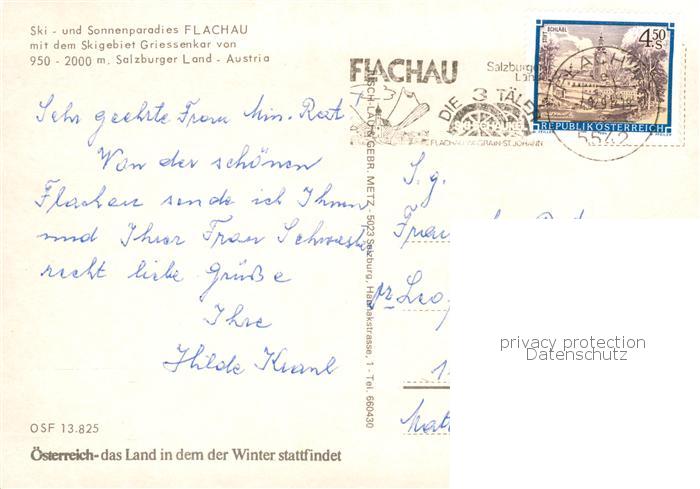 Ski - und Sonnenparadies FLACHAU
mit dem Skigebiet Griessenkar von
950 - 2000 m, Salzburger Land - Austria
Sehr geehrte Frau Min. Rat.
Von der schönen
Flachau sende ich Ihnen
und Ihrer Frau Schwester
recht liebe Grüße
Ihre
Hilde Kranl
OSF 13.825
Österreich- das Land in dem der Winter stattfindet
GEBR. METZ - 5023 Salzburg, Haunakstrasse, 1 - Tel. 660430
FLACHAU
Salzburger
Land
DIE 3 TÄLER
FLACHAU WAGRAIN-ST.JOHANN
STIFT SCHLÄGL
4.50
S
REPUBLIK ÖSTERREICH
5542
S. g.
Frau
Leo
privacy protection
Datenschutz